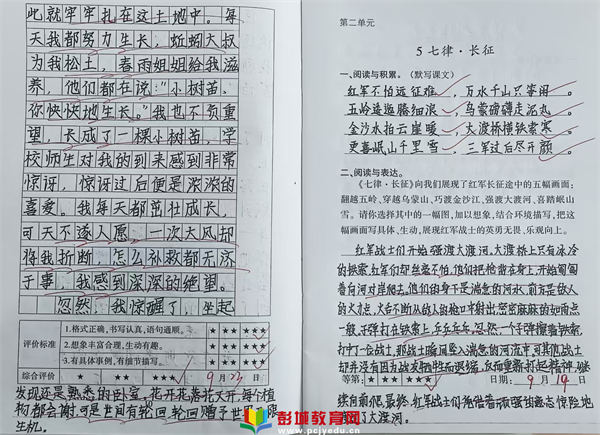 此就牢牢扎在这土地中。每
天我都努力生长，蚯蚓大叔
为我松土，春雨姐姐给我滋
养，他们都在说：“小树苗，
你快快地生长。”我也不负重
望，长成了一棵小树苗，学
校师生对我的到来感到非常
惊讶，惊讶过后便是深深的
喜爱。我每天都茁壮成长，
可天不遂人愿，一次大风却
将我折断，怎么补救都无济
于事，我感到深深的绝望。
忽然，我惊醒了，坐起
评价标准
1.格式正确，书写认真，语句通顺。
★ ★★ ★★★ ★★★★
2.想象丰富合理，生动有趣。
★ ★★ ★★★ ★★★★
3.有具体事例，有细节描写。
★ ★★ ★★★ ★★★★
综合评价
★ ★★ ★★★ ★★★★
9月23日
发现还是熟悉的卧室。花开花落花天开，每个植
物都会谢，可是世间有轮回，轮回赐予世界无限
生机。
第二单元
5 七律·长征
一、阅读与积累。（默写课文）
红军不怕远征难，万水千山只等闲。
五岭逶迤腾细浪，乌蒙磅礴走泥丸。
金沙水拍云崖暖，大渡桥横铁索寒。
更喜岷山千里雪，三军过后尽开颜。
二、阅读与表达。
《七律·长征》向我们展现了红军长征途中的五幅画面：
翻越五岭、穿越乌蒙山、巧渡金沙江、强渡大渡河、喜踏岷山
雪。请你选择其中的一幅图，加以想象，结合环境描写，把这
幅画面写具体、生动，展现红军战士的英勇无畏、乐观向上。
红军战士们开始强渡大渡河，大渡桥上只有冰冷
的铁索，红军们却丝毫不怕，他们把枪背在身上，开始匍匐
着向对岸爬去，他们的身下是湍急的河水，前方是敌人
的火力点，大台不断从敌人的枪口中射出，密密麻麻的如雨点
一般，子弹打在铁索上，乒乒乓乓，忽然，一个子弹擦着铁索，
打中了一位战士，那战士瞬间坠入湍急的河流中，可其他战士
却并没有因为战友牺牲而退缩，反而重新打起精神，继
等第：
日期：9月14日
续向前爬，最终，红军战士们凭借着顽强的意志惊险地
渡过了大渡河。
彭城教育网
www.pcjyedu.cn